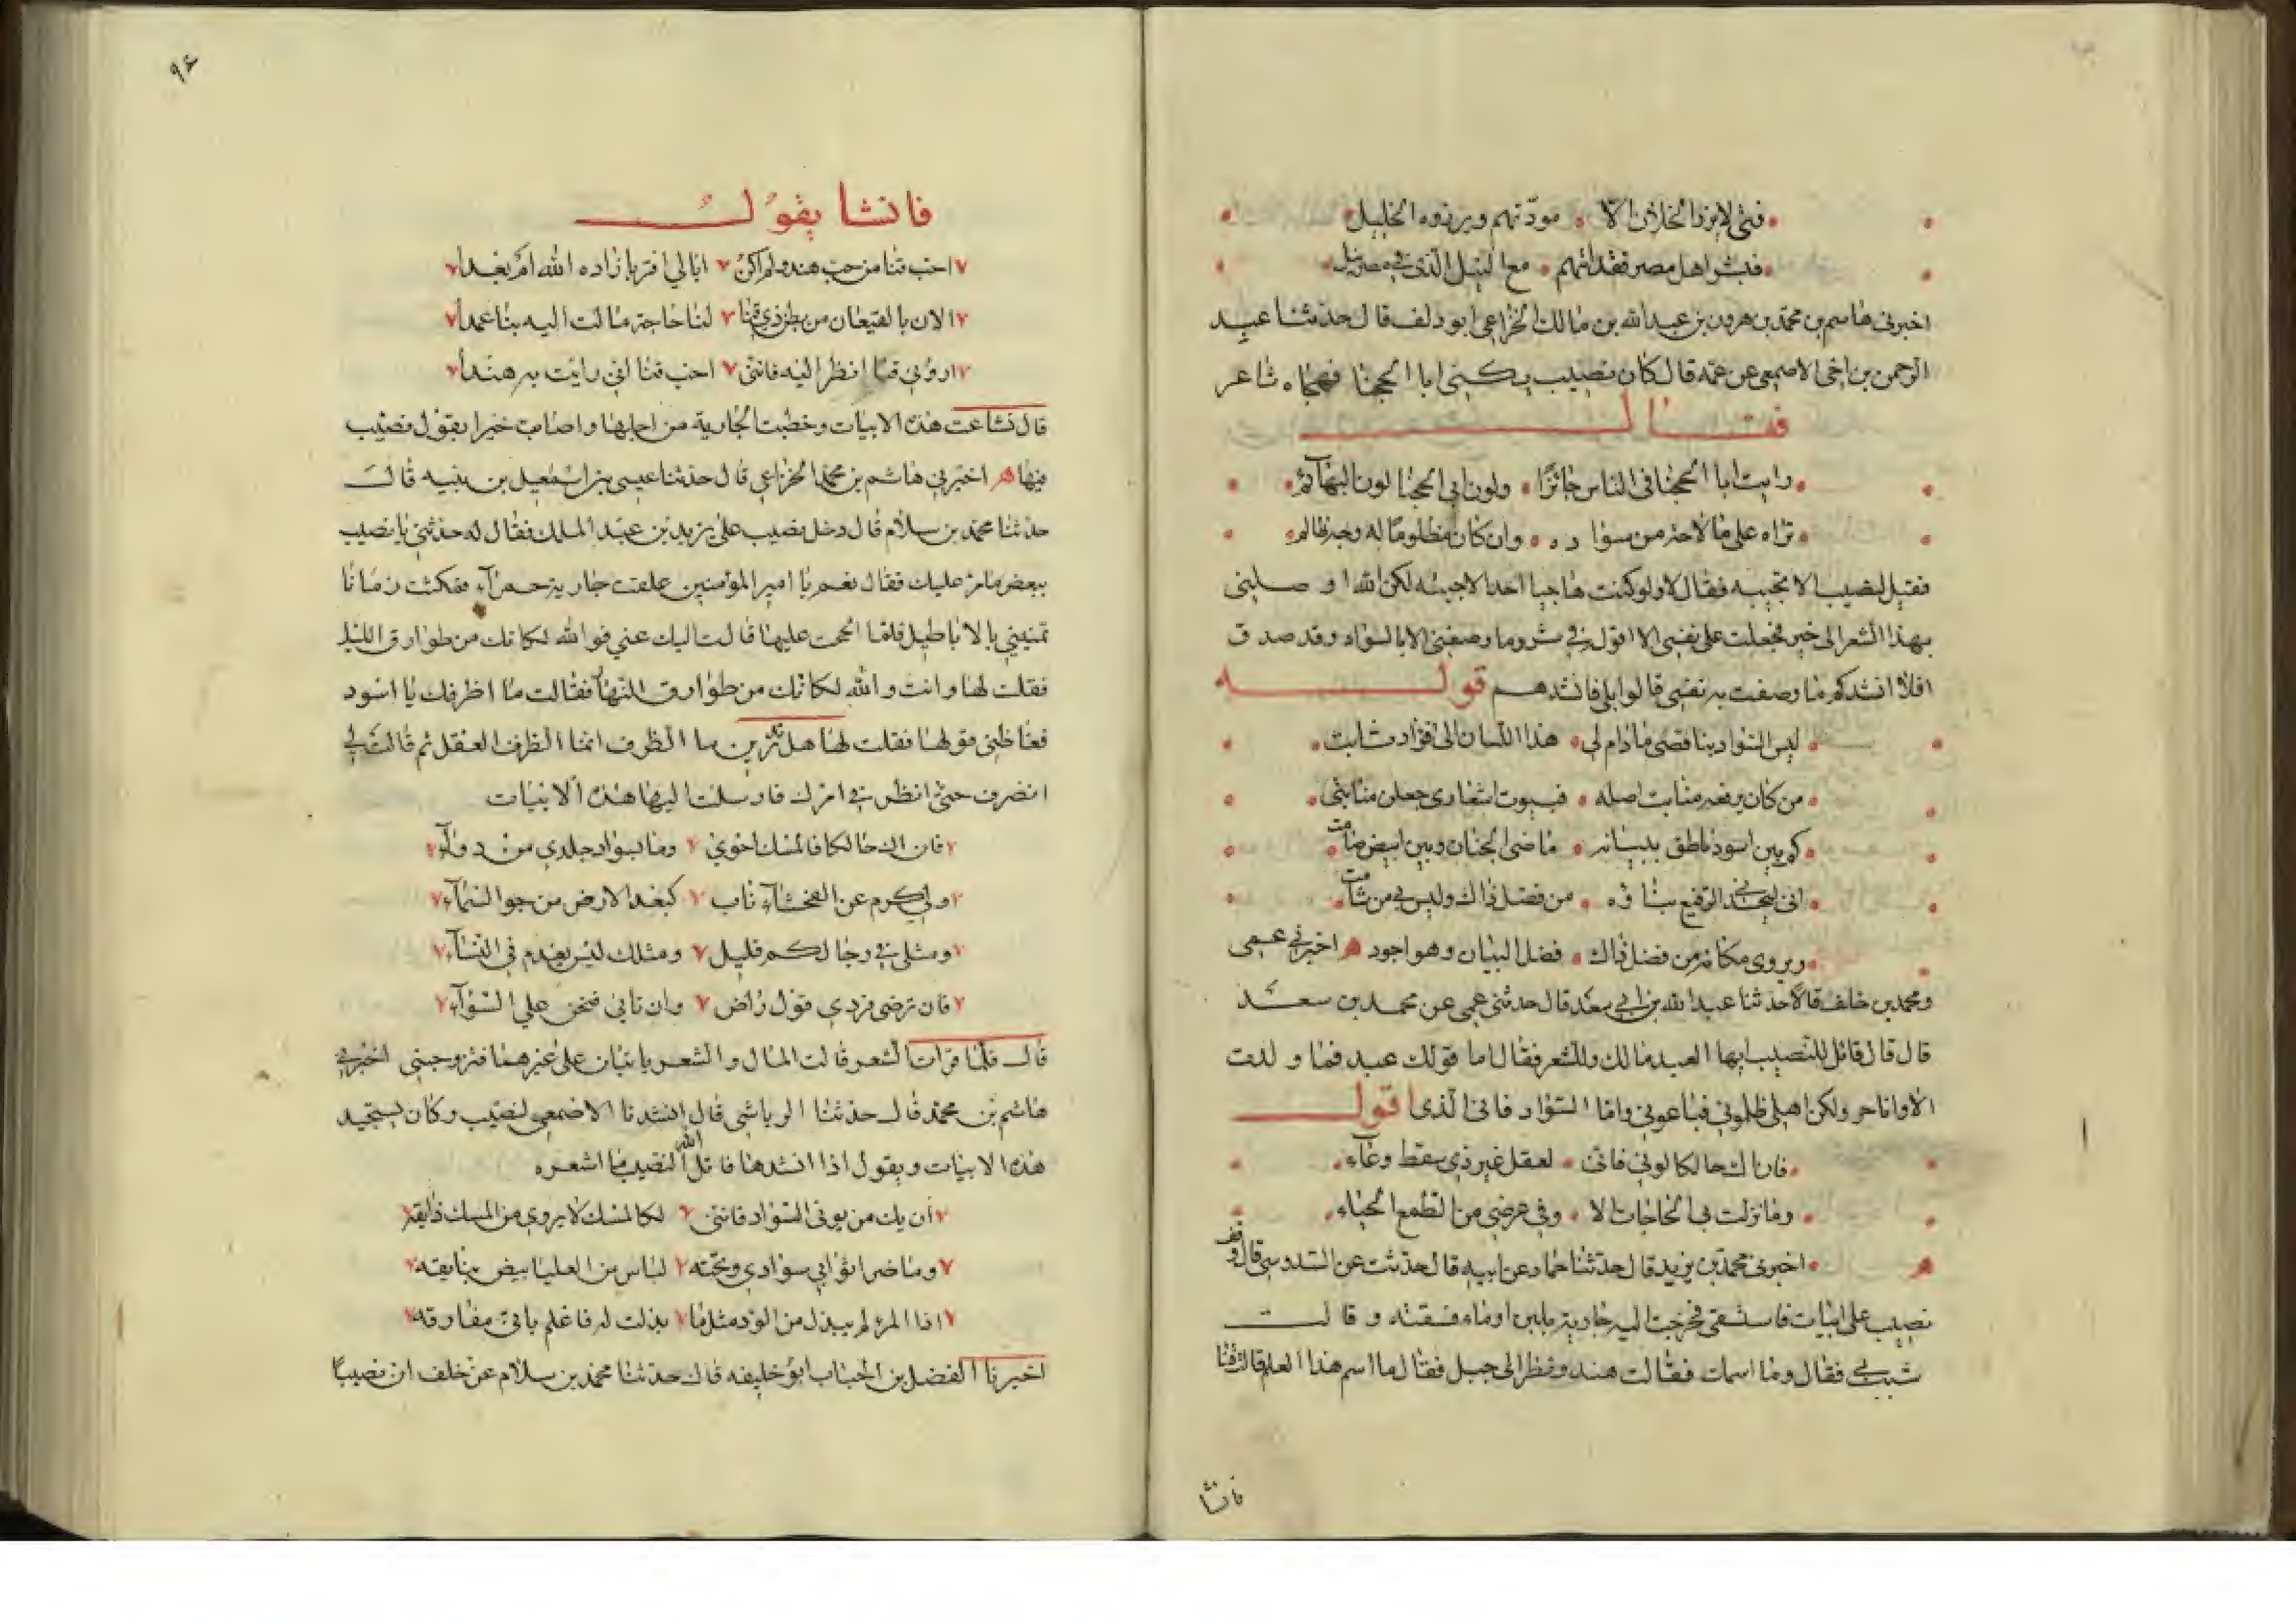 فتى لا يرزا الخلان الا مودتهم ويرزوه الخليل
فبشر اهل مصر فقد اتاهم مع النيل الذي في مصر نيل
اخبرني هاشم بن محمد بن هرون بن عبد الله بن مالك الخزاعي ابو دلف قال حدثنا عبد
الرحمن بن اخي الاصمعي عن عمه قال كان نصيب يكنى ابا الحجنا فهجاه شاعر
فقال
رايت ابا الحجنا في الناس حائرًا ولون ابي الحجنا لون البهائم
تراه على ما لاحه من سواده وان كان مظلومًا له وجه ظالم
فقيل لنصيب الا تجيبه فقال لا ولو كنت هاجيا احدا لاجبته لكن الله اوصلني
بهذا الشعر الى خير فجعلت على نفسي الا اقوله في شر وما وصفني الا بالسواد وقد صدق
افلا انشدكم ما وصفت به نفسي قالوا بلى فانشدهم قوله
ليس السواد بناقصي ما دام لي هذا اللسان الى فؤاد ثابت
من كان يرفعه منابت اصله فبيوت اشعاري جعلن منابتي
كم بين اسود ناطق ببيانه ماضي الجنان وبين ابيض صامت
اني ليحسدني الرفيع بناؤه من فضل ذاك وليس بي من شامت
ويروى مكانه من فضل ذاك فضل البيان وهو اجود ه اخبرني عمي
ومحمد بن خلف قالا حدثنا عبد الله بن ابي سعد قال حدثني عمي عن محمد بن سعد
قال قال قائل للنصيب ايها العبد مالك وللشعر فقال اما قولك عبد فما ولدت
الا وانا حر ولكن اهلي ظلموني فباعوني واما السواد فانا الذي اقول
فان اك حالكا لوني فاني لعقل غير ذي سقط وعاء
وما نزلت بي الحاجات الا وفي عرضي من الطمع الحياء
ه اخبرني محمد بن يزيد قال حدثنا حماد عن ابيه قال حدثت عن السدوسي قال وقف
نصيب على ابيات فاستسقى فخرجت اليه جارية بلبن او ماء فسقته وقالت
شبب بي فقال وما اسمك فقالت هند ونظر الى جبل فقال ما اسم هذا العلم قالت قنا
فانشا
٩٤
فانشا يقول
احب قنا من حب هند ولم اكن ابالي اقربا زاده الله ام بعدا
الا ان بالقيعان من بطن ذي قنا لنا حاجة مالت اليه بنا عمدا
اروني قنا انظر اليه فانني احب قنا اني رايت به هندا
قال فشاعت هذه الابيات وخطبت الجارية من اجلها واصابت خيرا بقول نصيب
فيها ه اخبرني هاشم بن محمد الخزاعي قال حدثنا عيسى بن اسمعيل بن نبيه قال
حدثنا محمد بن سلام قال دخل نصيب على يزيد بن عبد الملك فقال له حدثني يا نصيب
ببعض ما مر عليك فقال نعم يا امير المؤمنين علقت جارية حمرآء فمكثت زمانا
تمنيني بالاباطيل فلما الححت عليها قالت اليك عني فوالله لكانك من طوارق الليل
فقلت لها وانت والله لكانك من طوارق النهار فقالت ما اظرفك يا اسود
فغاظني قولها فقلت لها هل تدرين ما الظرف انما الظرف العقل ثم قالت لي
انصرف حتى انظر في امرك فارسلت اليها هذه الابيات
فان اك حالكا فالمسك احوي وما لسواد جلدي من دوآء
ولي كرم عن الفحشآء ناب كبعد الارض من جو السمآء
ومثلي في رجالكم قليل ومثلك ليس يعدم في النسآء
فان ترضي فردي قول راض وان تابي فنحن علي السوآء
قال فلما قرات الشعر قالت المال والشعر ياتيان على غيرهما فتزوجتني اخبرني
هاشم بن محمد قال حدثنا الرياشي قال انشدنا الاصمعي لنصيب وكان يستجيد
هذه الابيات ويقول اذا انشدها قاتل الله نصيبا ما اشعره
فان يك من لوني السواد فانني لكالمسك لا يروي من المسك ذايقه
وما ضر اثوابي سوادي وتحته لباس من العليا بيض بنايقه
اذا المرء لم يبذل من الود مثل ما بذلت له فاعلم باني مفارقه
اخبرنا الفضل بن الحباب ابو خليفه قال حدثنا محمد بن سلام عن خلف ان نصيبًا